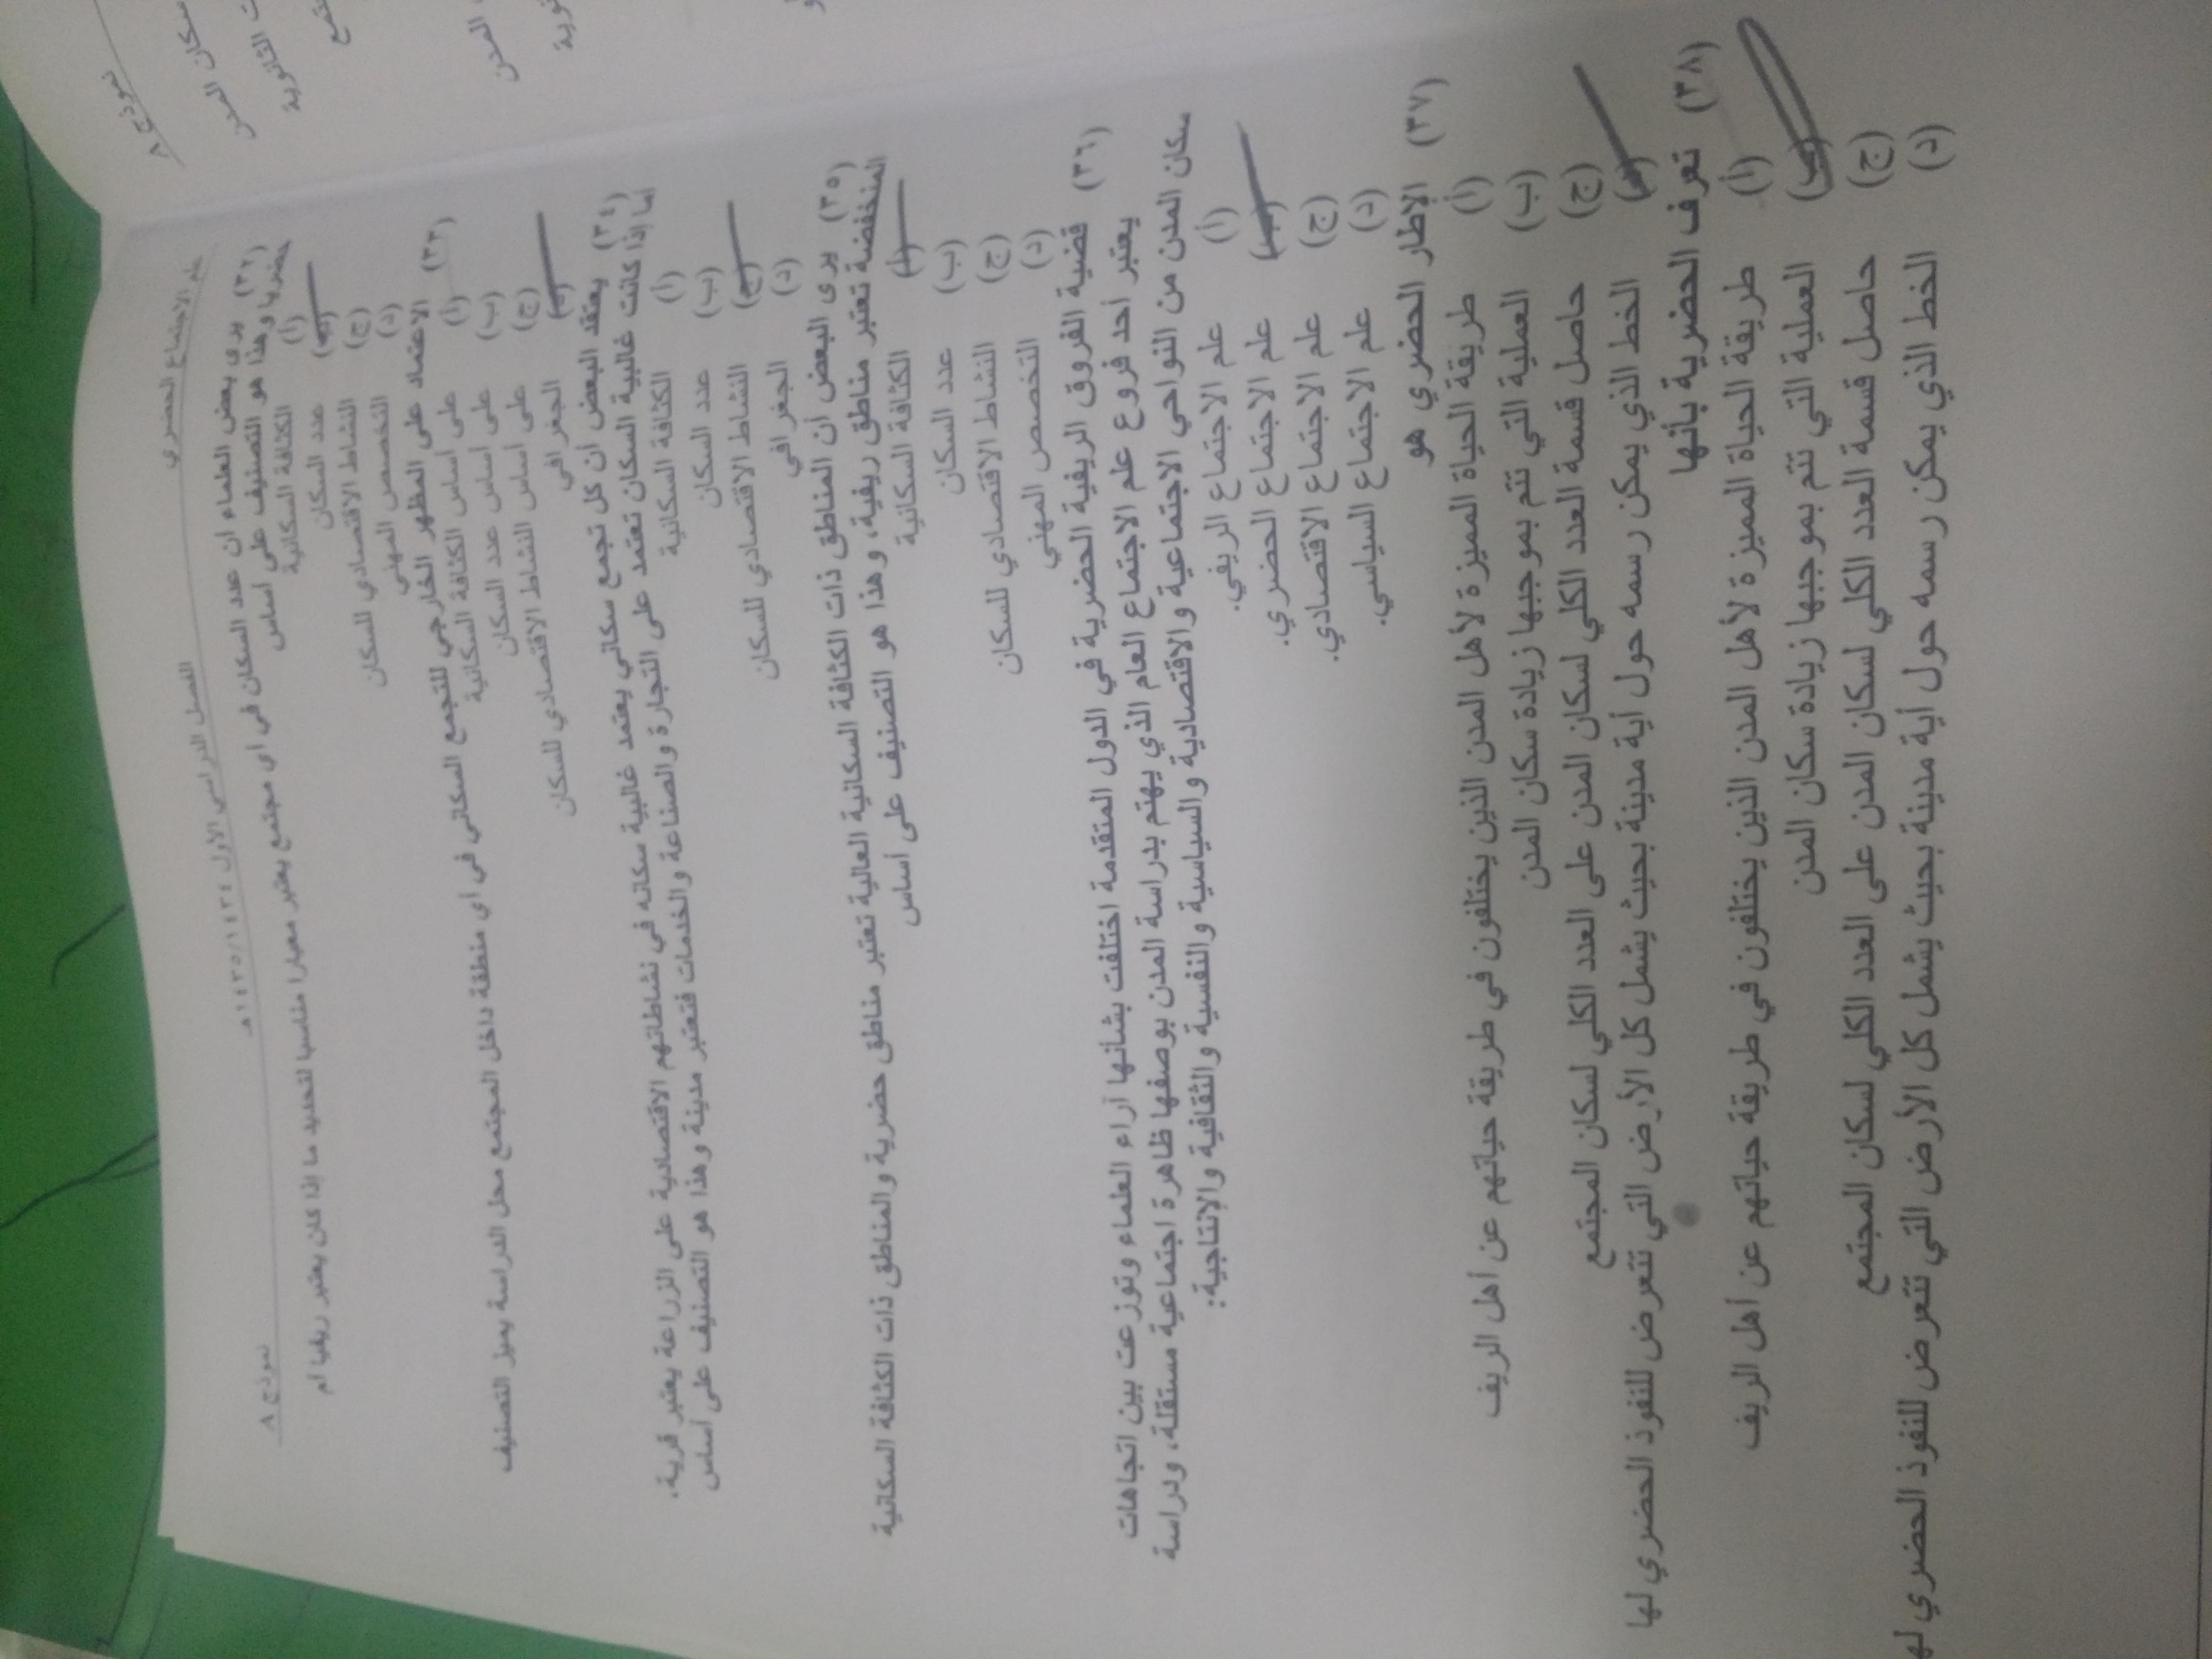 علم الاجتماع الحضري الفصل الدراسي الأول ١٤٣٥/١٤٣٤هـ نموذج A
(٣٢) يرى بعض العلماء ان عدد السكان في اي مجتمع يعتبر معيارا مناسبا لتحديد ما إذا كان يعتبر ريفيا ام
حضريا وهذا هو التصنيف على أساس
(أ) الكثافة السكانية
(ب) عدد السكان
(ج) النشاط الاقتصادي للسكان
(د) التخصص المهني
(٣٣) الاعتماد على المظهر الخارجي للتجمع السكاني في أي منطقة داخل المجتمع محل الدراسة يميز التصنيف
(أ) على أساس الكثافة السكانية
(ب) على أساس عدد السكان
(ج) على أساس النشاط الاقتصادي للسكان
(د) الجغرافي
(٣٤) يعتقد البعض أن كل تجمع سكاني يعتمد غالبية سكانه في نشاطاتهم الاقتصادية على الزراعة يعتبر قرية.
أما إذا كانت غالبية السكان تعتمد على التجارة والصناعة والخدمات فتعتبر مدينة وهذا هو التصنيف على أساس
(أ) الكثافة السكانية
(ب) عدد السكان
(ج) النشاط الاقتصادي للسكان
(د) الجغرافي
(٣٥) يرى البعض أن المناطق ذات الكثافة السكانية العالية تعتبر مناطق حضرية والمناطق ذات الكثافة السكانية
المنخفضة تعتبر مناطق ريفية، وهذا هو التصنيف على أساس
(أ) الكثافة السكانية
(ب) عدد السكان
(ج) النشاط الاقتصادي للسكان
(د) التخصص المهني
(٣٦) قضية الفروق الريفية الحضرية في الدول المتقدمة اختلفت بشأنها آراء العلماء وتوزعت بين اتجاهات
يعتبر أحد فروع علم الاجتماع العام الذي يهتم بدراسة المدن بوصفها ظاهرة اجتماعية مستقلة، ودراسة
سكان المدن من النواحي الاجتماعية والاقتصادية والسياسية والنفسية والثقافية والإنتاجية:
(أ) علم الاجتماع الريفي.
(ب) علم الاجتماع الحضري.
(ج) علم الاجتماع الاقتصادي.
(د) علم الاجتماع السياسي.
(٣٧) الإطار الحضري هو
(أ) طريقة الحياة المميزة لأهل المدن الذين يختلفون في طريقة حياتهم عن أهل الريف
(ب) العملية التي تتم بموجبها زيادة سكان المدن
(ج) حاصل قسمة العدد الكلي لسكان المدن على العدد الكلي لسكان المجتمع
(د) الخط الذي يمكن رسمه حول أية مدينة بحيث يشمل كل الأرض التي تتعرض للنفوذ الحضري لها
(٣٨) تعرف الحضرية بأنها
(أ) طريقة الحياة المميزة لأهل المدن الذين يختلفون في طريقة حياتهم عن أهل الريف
(ب) العملية التي تتم بموجبها زيادة سكان المدن
(ج) حاصل قسمة العدد الكلي لسكان المدن على العدد الكلي لسكان المجتمع
(د) الخط الذي يمكن رسمه حول أية مدينة بحيث يشمل كل الأرض التي تتعرض للنفوذ الحضري لها
نموذج A
سكان المدن
المدن